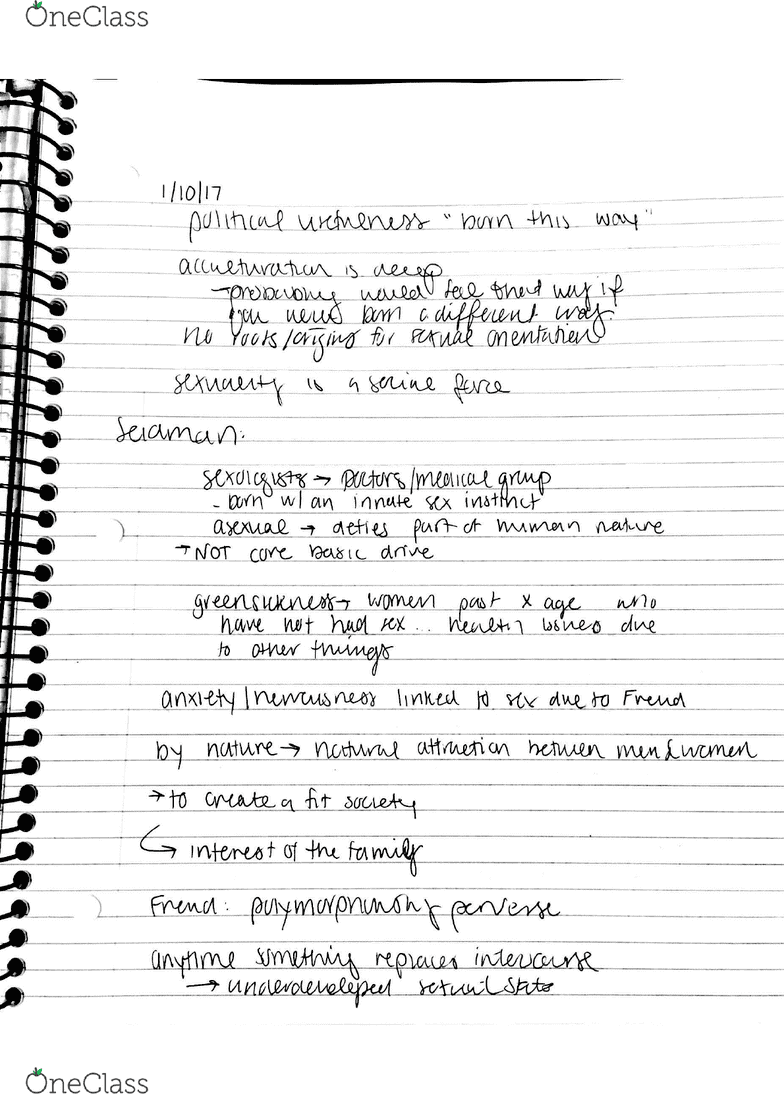 OneClass
1/10/17
political usefulness "born this way"
acculturation is deep
→ probably would feel that way if
you were born a different way.
no roots/origins for sexual orientation
sexuality is a social force
Seidman:
sexologists → Doctors/medical group
- born w/ an innate sex instinct
asexual → defies part of human nature
→ NOT core basic drive
greensickness → women past x age who
have not had sex... health issues due
to other things
anxiety/nervousness linked to sex due to Freud
by nature → natural attraction between men & women
→ to create a fit society
↳ interest of the family
Freud: polymorphously perverse
anytime something replaces intercourse
→ underdeveloped sexual state
OneClass